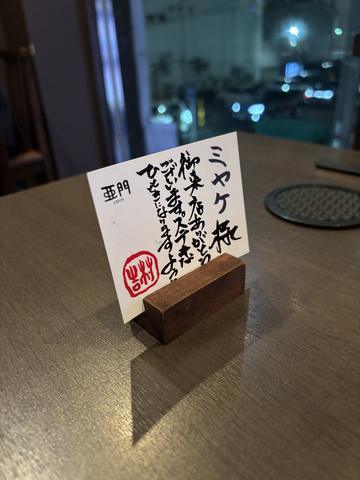 ミヤケ様
御来店ありがとう
ございます。ステキな
ひとときになりますよう
亜門
吉村